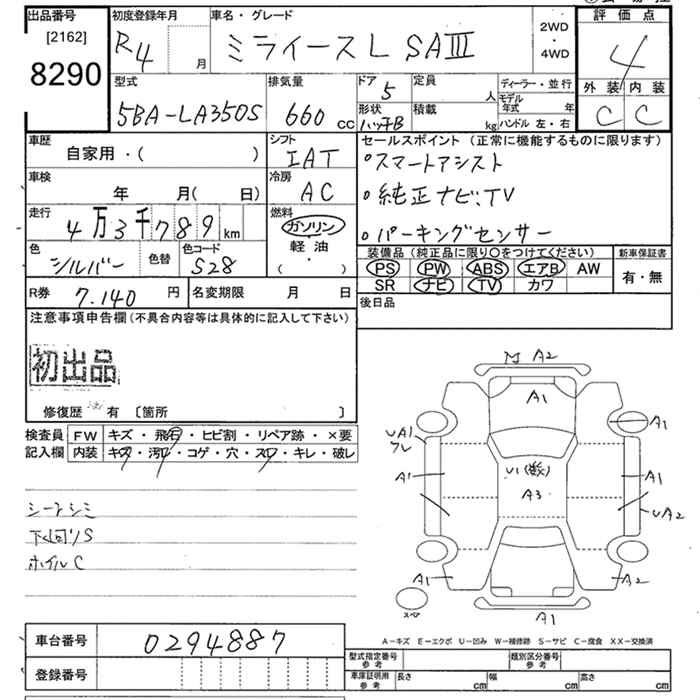 出品番号
[2162]
8290
初度登録年月
R4 月
車名・グレード
ミライース L SAⅢ
2WD
・
4WD
評価点
4
外装 内装
C C
型式
5BA-LA350S
排気量
660 cc
ドア 5
形状 ハッチB
定員 人
積載 kg
ディーラー・並行
モデル年式 年
ハンドル 左・右
車歴
自家用・( )
シフト
IAT
セールスポイント (正常に機能するものに限ります)
・スマートアシスト
・純正ナビ、TV
・パーキングセンサー
車検
年 月( 日)
冷房
AC
走行
4万3千789 km
燃料
ガソリン
軽油
( ・ )
色
シルバー
色替
色コード
S28
装備品 (純正品に限り○をつけてください)
新車保証書
PS PW ABS エアB AW
SR ナビ TV カワ
有・無
R券 7.140 円
名変期限 月 日
後日品
注意事項申告欄(不具合内容等は具体的に記入して下さい)
初出品
修復歴 有 〔箇所 〕
検査員
記入欄
FW キズ・飛石・ヒビ割・リペア跡・×要
内装 キズ・汚れ・コゲ・穴・スレ・キレ・破レ
シートシミ
下回りS
ホイルC
M A2
A1
A1
UA1
フレ
A1
U1
A3
A1
UA2
A1
A2
スペア
A1
A-キズ E-エクボ U-凹み W-補修跡 S-サビ C-腐食 XX-交換済
車台番号 0294887
登録番号
型式指定番号
参考
類別区分番号
参考
車庫証明用
参考
長さ cm
幅 cm
高さ cm